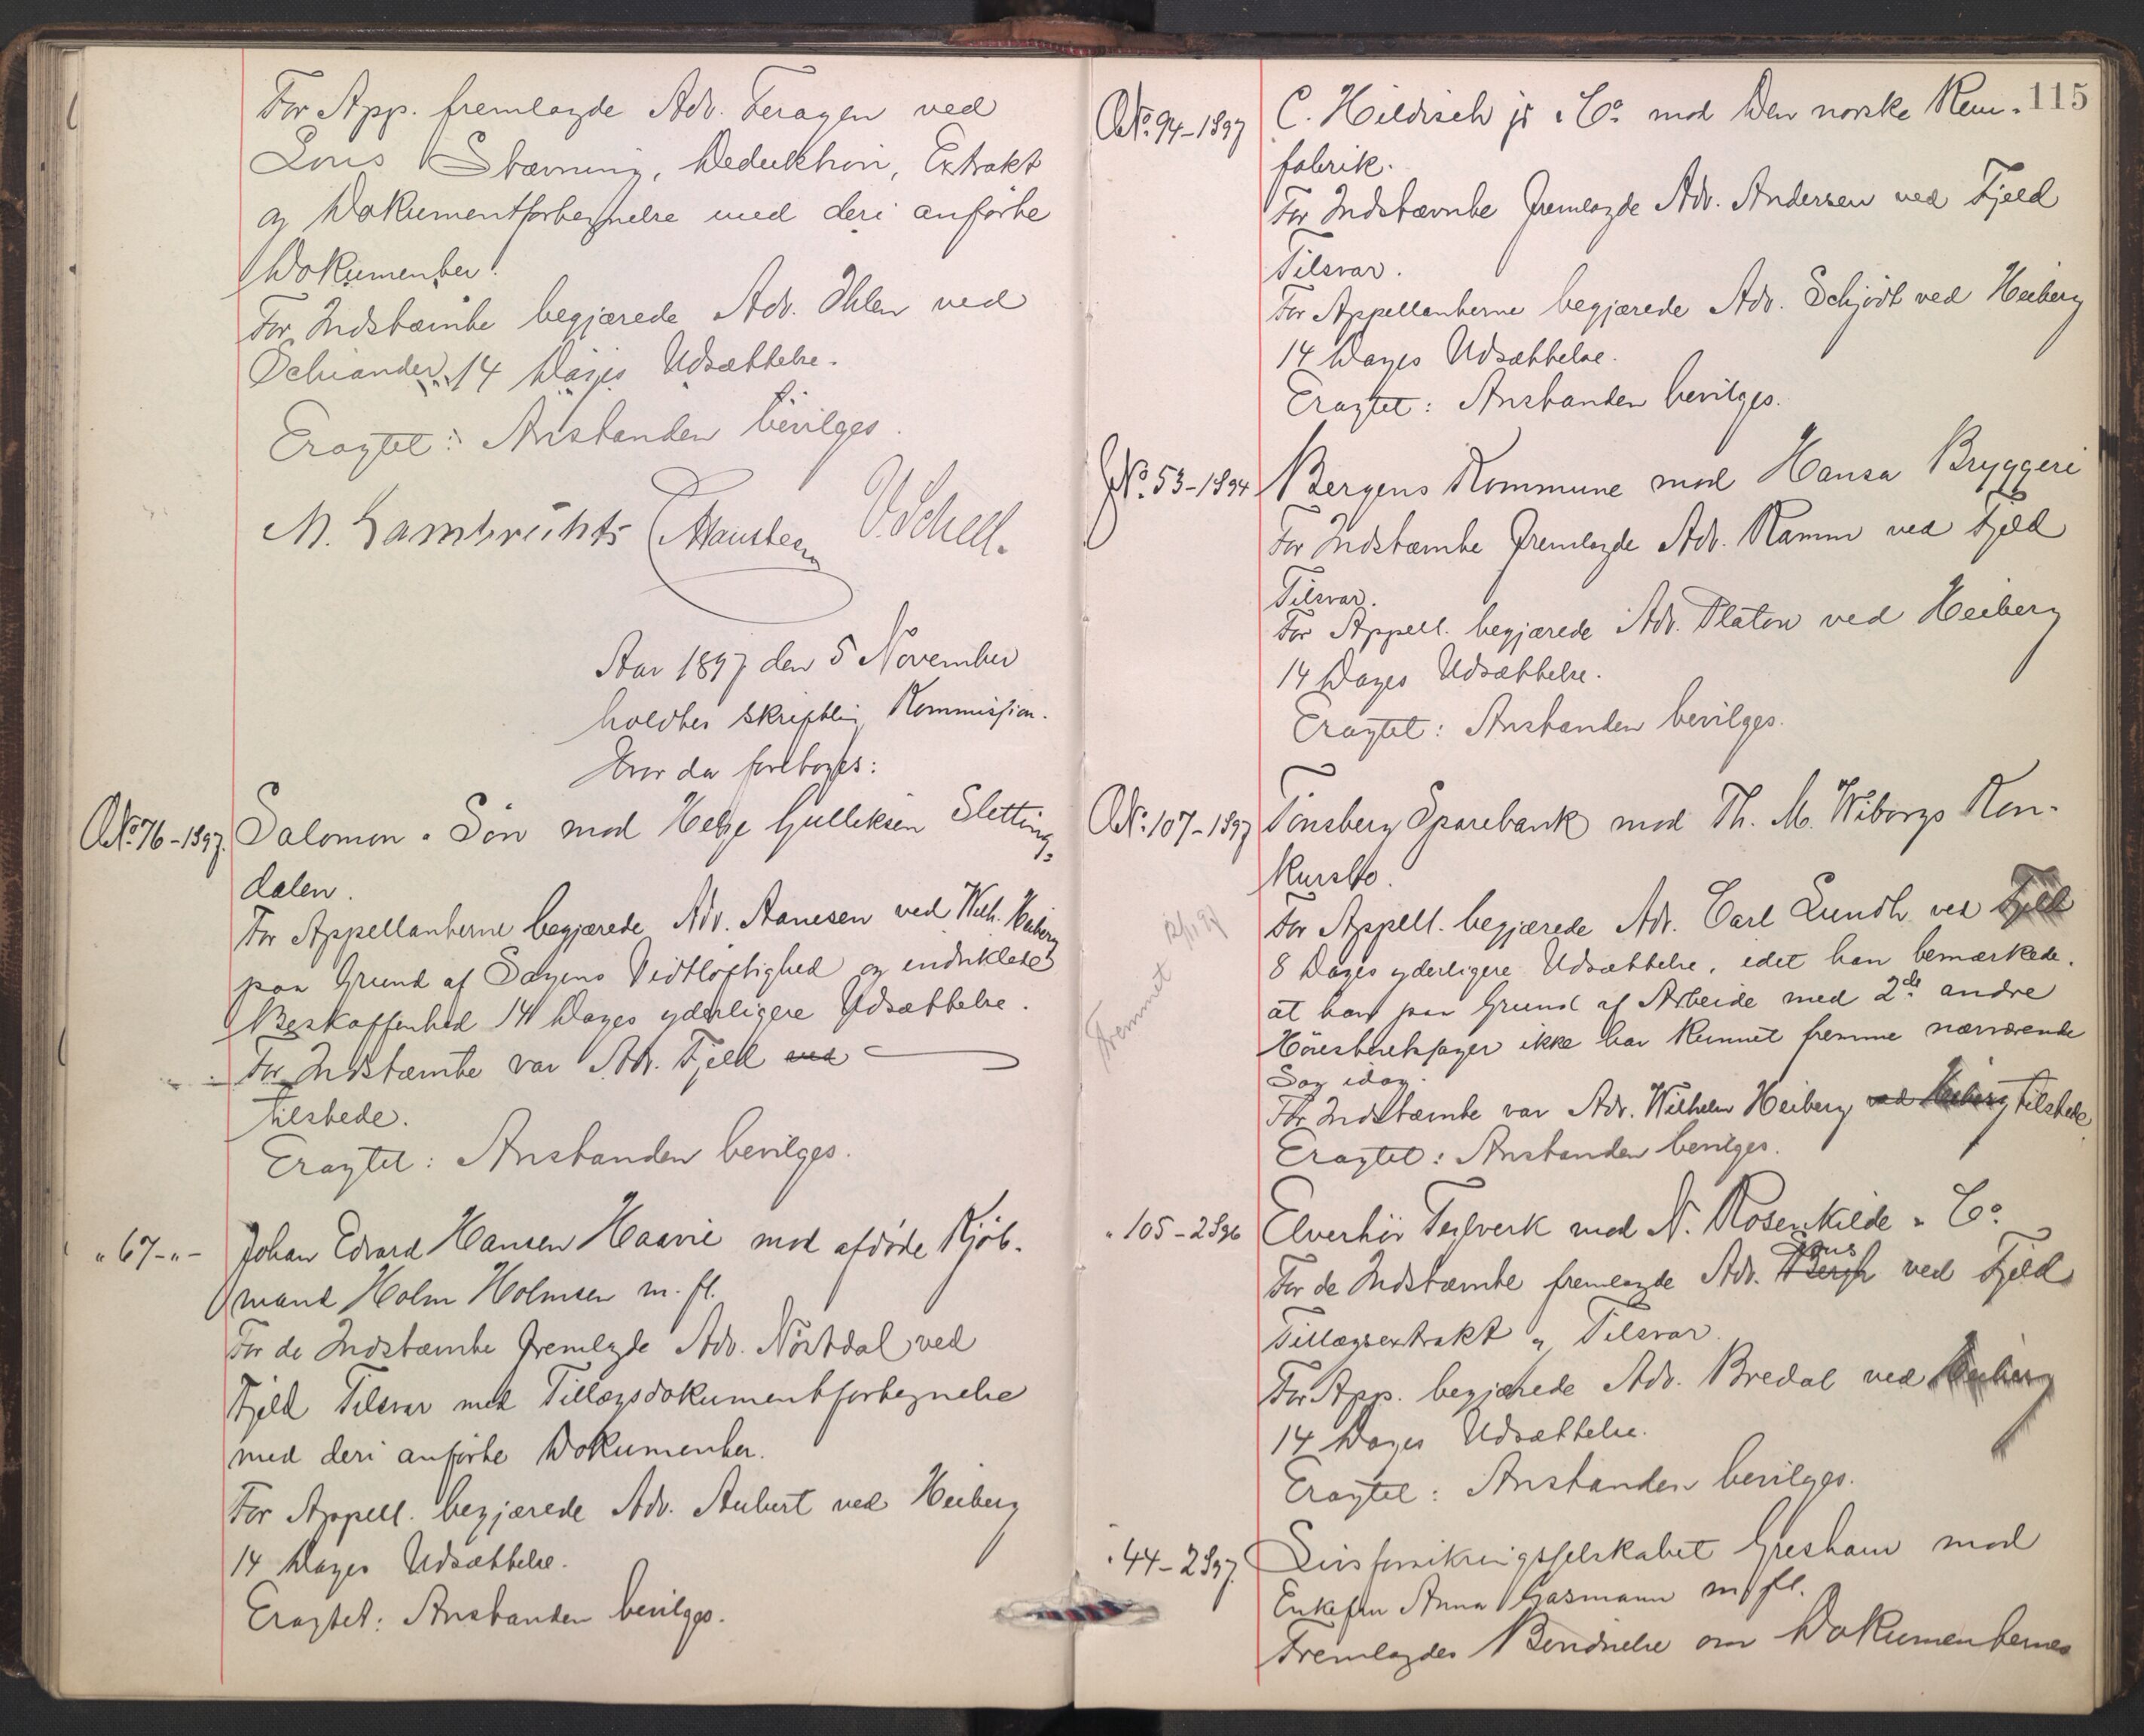 For App. fremlagde Adv. Feragen ved
Lous Stævning, Deduktion, Extrakt
og Dokumentfortegnelse med deri anførte
Dokumenter.
For Indstævnte begjærede Adv. Ihlen ved
Schiander 14 Dages Udsættelse.
Eragtet: Anstanden bevilges.
M. Lambrechts Hansteen V. Scheel.
Aar 1897 den 5 November
holdtes skriftlig Kommission.
Hvor da foretoges:
No. 76-1897. Salomon & Søn mod Helge Gulleksen Sletting-
dalen.
For Appellanterne begjærede Adv. Aanesen ved Wilh. Heiberg
paa Grund af Sagens Vidtløftighed og indviklede
Beskaffenhed 14 Dages yderligere Udsættelse.
For Indstævnte var Adv. Fjeld ved
tilstede.
Eragtet: Anstanden bevilges.
" 67-"- Johan Edvard Hansen Haavie mod afdøde Kjøb-
mand Holm Holmsen m. fl.
For de Indstævnte fremlagde Adv. Nørtdal ved
Fjeld Tilsvar med Tillægsdokumentfortegnelse
med deri anførte Dokumenter.
For Appell. begjærede Adv. Aubert ved Heiberg
14 Dages Udsættelse.
Eragtet: Anstanden bevilges.
115
No. 94-1897 C. Hildisch jr & Co. mod Den norske Rem-
fabrik.
For Indstævnte fremlagde Adv. Andersen ved Fjeld
Tilsvar.
For Appellanterne begjærede Adv. Schjødt ved Heiberg
14 Dages Udsættelse.
Eragtet: Anstanden bevilges.
No. 53-1894 Bergens Kommune mod Hansa Bryggeri
For Indstævnte fremlagde Adv. Kamm ved Fjeld
Tilsvar.
For Appell. begjærede Adv. Platou ved Heiberg
14 Dages Udsættelse.
Eragtet: Anstanden bevilges.
No. 107-1897 Tønsberg Sparebank mod Th. M. Wiborgs Kon-
kursbo.
For Appell. begjærede Adv. Carl Lundh ved Fjeld
8 Dages yderligere Udsættelse, idet han bemærkede,
at han paa Grund af Arbeide med 2de andre
Høiesteretssager ikke har kunnet fremme nærværende
Sag idag.
Fremmet
For Indstævnte var Adv. Wilhelm Heiberg ved Heiberg tilstede
Eragtet: Anstanden bevilges.
" 105-2896 Elverhøi Teglverk mod N. Rosenkilde & Co.
For de Indstævnte fremlagde Adv. Bergh Lous ved Fjeld
Tillægsextrakt og Tilsvar.
For App. begjærede Adv. Bredal ved Heiberg
14 Dages Udsættelse.
Eragtet: Anstanden bevilges.
" 44-2897. Livsforsikringsselskabet Gresham mod
Enkefru Anna Gasmann m. fl.
Fremlagdes Bevidnelse om Dokumenternes